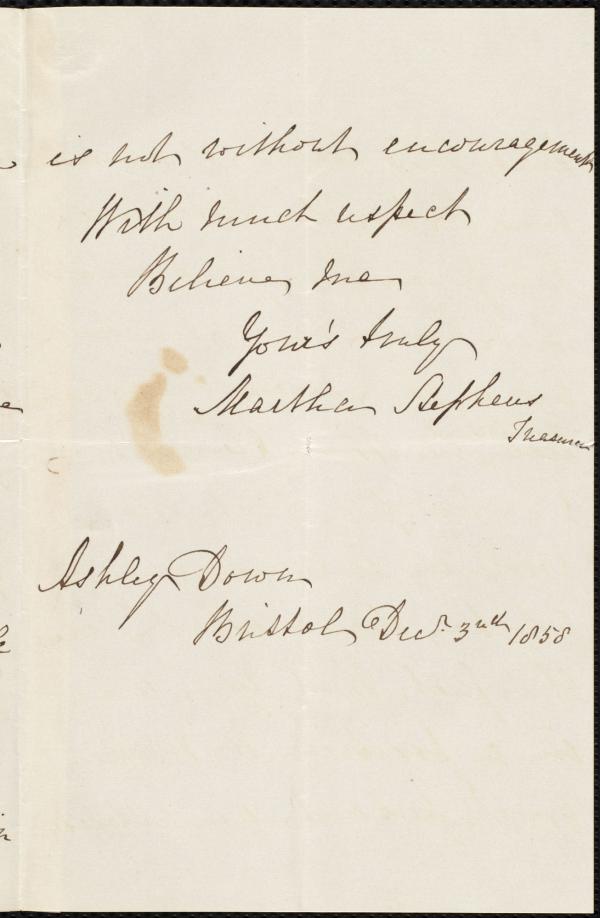 is not without encouragement
With much respect
Believe me
Your's truly
Martha Stephens
Treasurer
Ashley Down
Bristol Decr. 3rd 1858